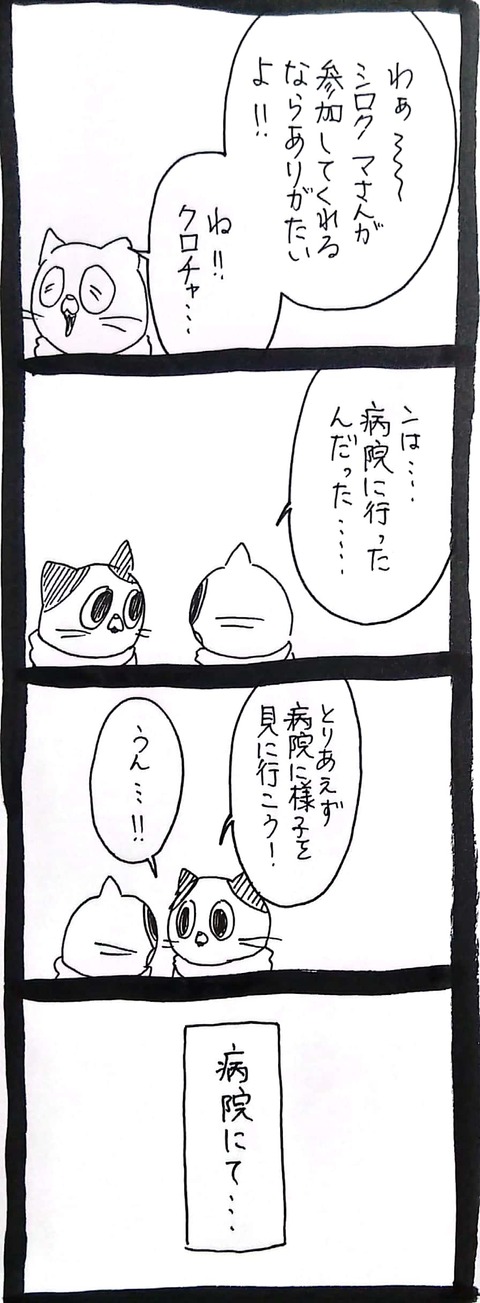 わぁ〜〜〜
シロクマさんが
参加してくれる
ならありがたい
よ!!
ね!!
クロチャ…
ンは…
病院に行った
んだった……
とりあえず
病院に様子を
見に行こう!
うん…!!
病院にて…